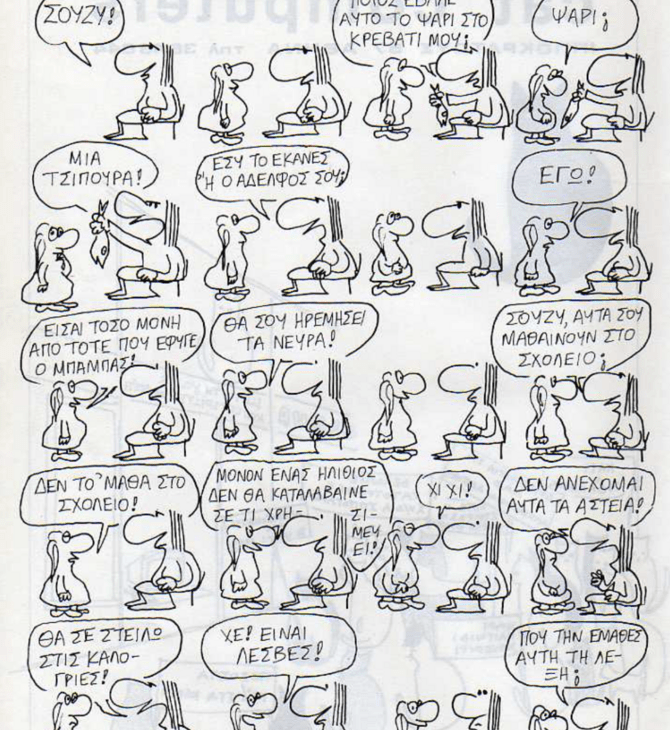 ΣΟΥΖΥ!
ΠΟΙΟΣ ΕΒΑΛΕ
ΑΥΤΟ ΤΟ ΨΑΡΙ ΣΤΟ
ΚΡΕΒΑΤΙ ΜΟΥ;
ΨΑΡΙ;
ΜΙΑ
ΤΣΙΠΟΥΡΑ!
ΕΣΥ ΤΟ ΕΚΑΝΕΣ
Ή Ο ΑΔΕΛΦΟΣ ΣΟΥ;
ΕΓΩ!
ΕΙΣΑΙ ΤΟΣΟ ΜΟΝΗ
ΑΠΟ ΤΟΤΕ ΠΟΥ ΕΦΥΓΕ
Ο ΜΠΑΜΠΑΣ!
ΘΑ ΣΟΥ ΗΡΕΜΗΣΕΙ
ΤΑ ΝΕΥΡΑ!
ΣΟΥΖΥ, ΑΥΤΑ ΣΟΥ
ΜΑΘΑΙΝΟΥΝ ΣΤΟ
ΣΧΟΛΕΙΟ;
ΔΕΝ ΤΟ 'ΜΑΘΑ ΣΤΟ
ΣΧΟΛΕΙΟ!
ΜΟΝΟΝ ΕΝΑΣ ΗΛΙΘΙΟΣ
ΔΕΝ ΘΑ ΚΑΤΑΛΑΒΑΙΝΕ
ΣΕ ΤΙ ΧΡΗ-
ΣΙ-
ΜΕΥ
ΕΙ!
ΧΙ ΧΙ!
ΔΕΝ ΑΝΕΧΟΜΑΙ
ΑΥΤΑ ΤΑ ΑΣΤΕΙΑ!
ΘΑ ΣΕ ΣΤΕΙΛΩ
ΣΤΙΣ ΚΑΛΟ-
ΓΡΙΕΣ!
ΧΕ! ΕΙΝΑΙ
ΛΕΣΒΕΣ!
ΠΟΥ ΤΗΝ ΕΜΑΘΕΣ
ΑΥΤΗ ΤΗ ΛΕ-
ΞΗ;